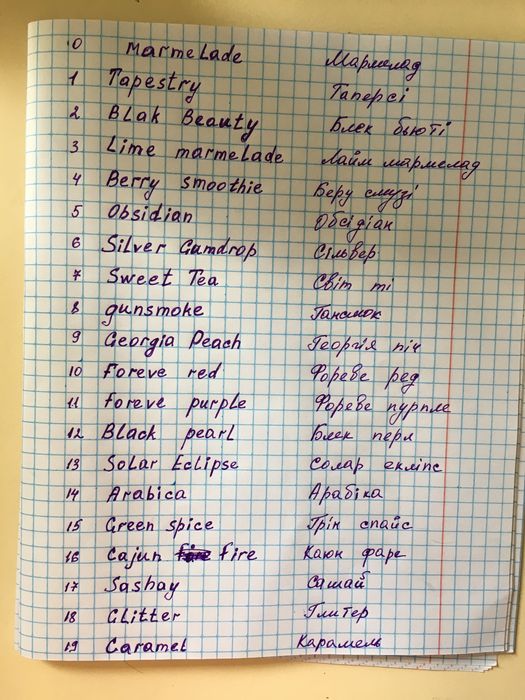 0 marmelade Мармелад
1 Tapestry Таперсі
2 Blak Beauty Блек бьюті
3 Lime marmelade Лайм мармелад
4 Berry smoothie Беру смузі
5 Obsidian Обсідіан
6 Silver Gumdrop Сільвер
7 Sweet Tea Світ ті
8 gunsmoke Гансмок
9 Georgia Peach Георгія піч
10 foreve red Фореве ред
11 foreve purple Фореве пурпле
12 Black pearl Блек перл
13 Solar Eclipse Солар екліпс
14 Arabica Арабіка
15 Green spice Грін спайс
16 Cajun fire Каюн фаре
17 Sashay Сашай
18 Glitter Глитер
19 Caramel Карамель